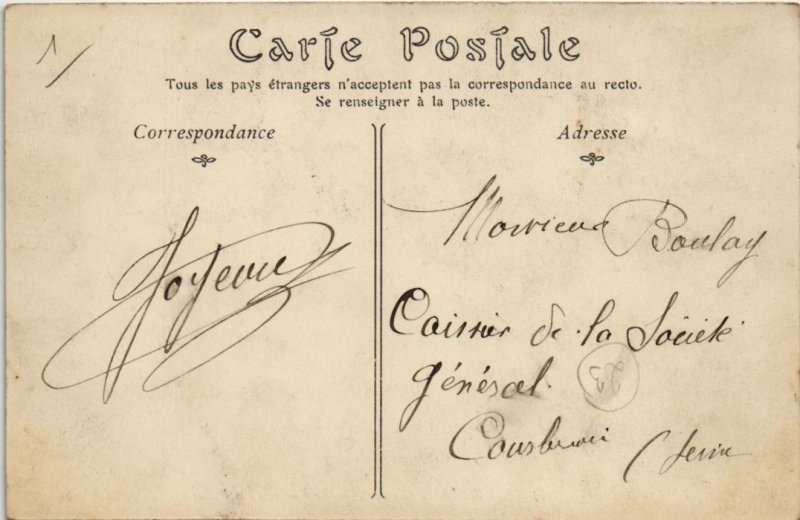 1/
Carte Postale
Tous les pays étrangers n'acceptent pas la correspondance au recto.
Se renseigner à la poste.
Correspondance
Adresse
Joyeux
Monsieur Boulay
Caissier de la Société
Général
23
Courbevoie (Seine